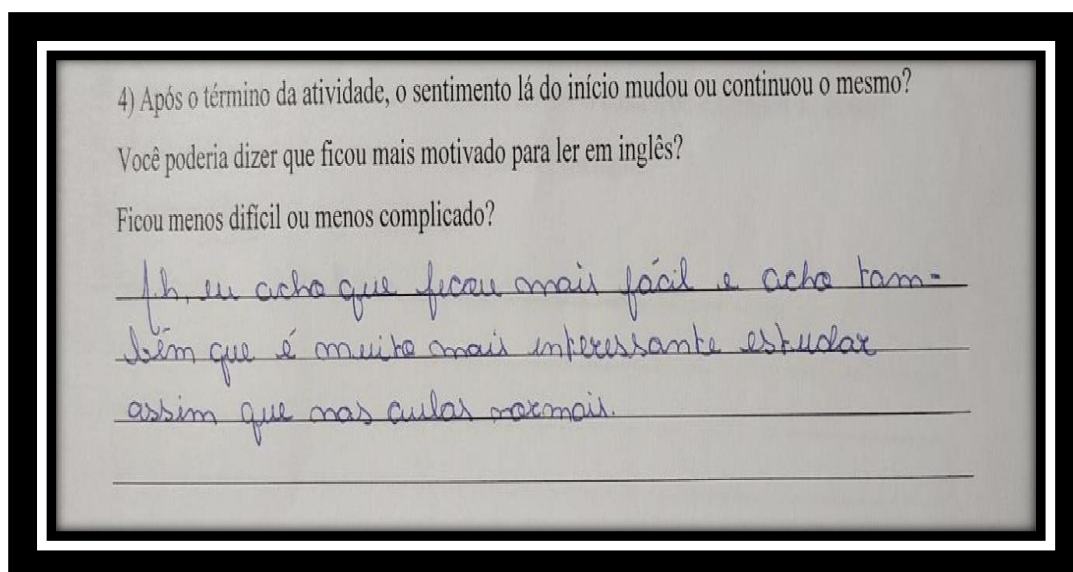 4) Após o término da atividade, o sentimento lá do início mudou ou continuou o mesmo?
Você poderia dizer que ficou mais motivado para ler em inglês?
Ficou menos difícil ou menos complicado?
Ah, eu acho que ficou mais fácil e acho tam-
bém que é muito mais interessante estudar
assim que nas aulas normais.